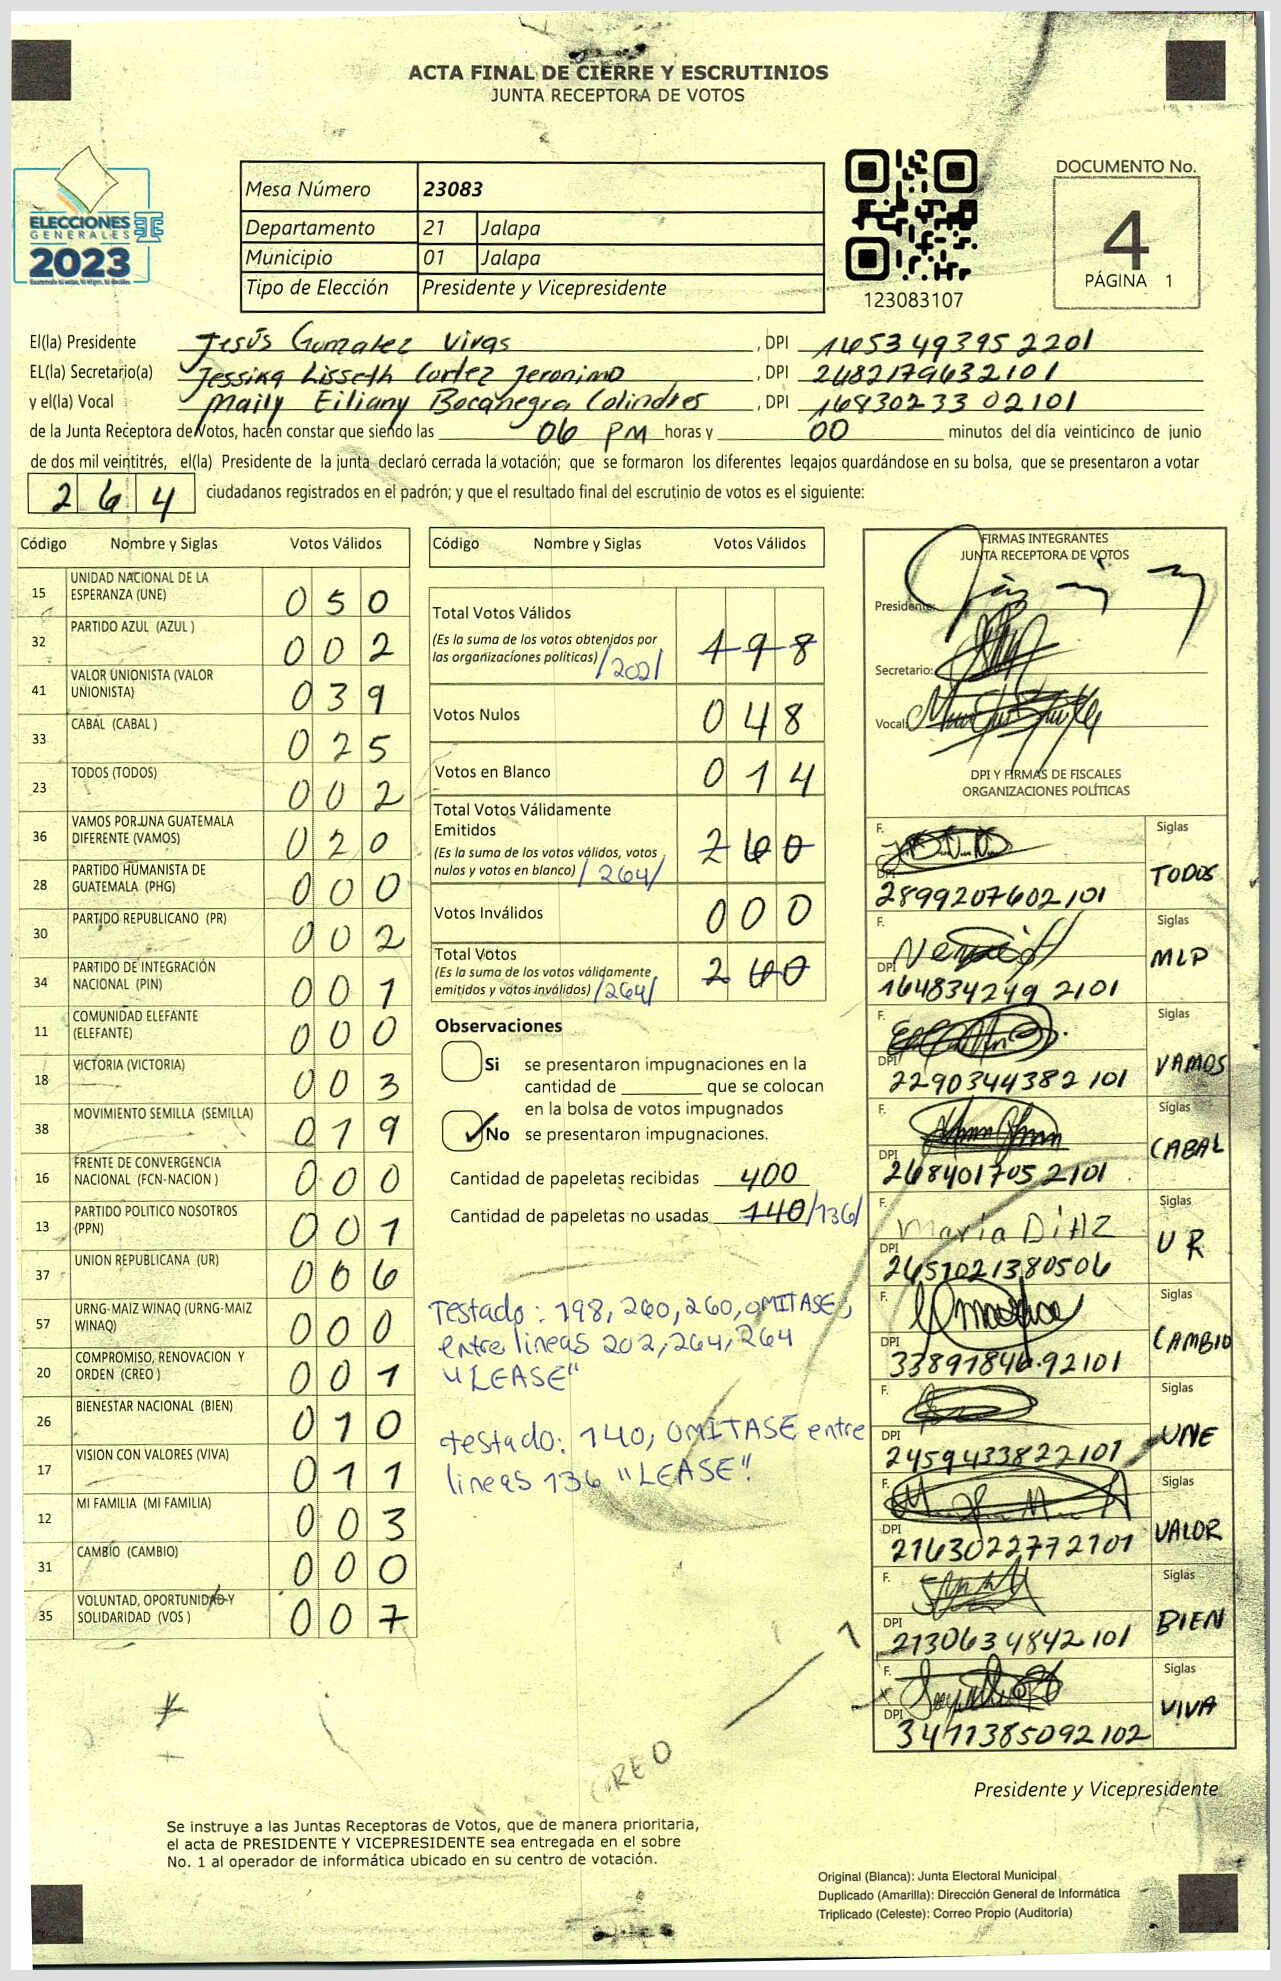 ACTA FINAL DE CIERRE Y ESCRUTINIOS
JUNTA RECEPTORA DE VOTOS
ELECCIONES
GENERALES
2023
Mesa Número 23083
Departamento 21 Jalapa
Municipio 01 Jalapa
Tipo de Elección Presidente y Vicepresidente
123083107
DOCUMENTO No.
4
PÁGINA 1
El(la) Presidente Jesús Gonzalez Vivas, DPI 1653493952201
EL(la) Secretario(a) Jessika Lisseth Cortez Jeronimo, DPI 2682179632101
y el(la) Vocal Maily Eiliany Bocanegra Colindres, DPI 1683023302101
de la Junta Receptora de Votos, hacen constar que siendo las 06 PM horas y 00 minutos del día veinticinco de junio
de dos mil veintitrés, el(la) Presidente de la junta declaró cerrada la votación; que se formaron los diferentes legajos guardándose en su bolsa, que se presentaron a votar
264 ciudadanos registrados en el padrón; y que el resultado final del escrutinio de votos es el siguiente:
Código Nombre y Siglas Votos Válidos
15 UNIDAD NACIONAL DE LA ESPERANZA (UNE) 050
32 PARTIDO AZUL (AZUL ) 002
41 VALOR UNIONISTA (VALOR UNIONISTA) 039
33 CABAL (CABAL ) 025
23 TODOS (TODOS) 002
36 VAMOS POR UNA GUATEMALA DIFERENTE (VAMOS) 020
28 PARTIDO HUMANISTA DE GUATEMALA (PHG) 000
30 PARTIDO REPUBLICANO (PR) 002
34 PARTIDO DE INTEGRACIÓN NACIONAL (PIN) 001
11 COMUNIDAD ELEFANTE (ELEFANTE) 000
18 VICTORIA (VICTORIA) 003
38 MOVIMIENTO SEMILLA (SEMILLA) 019
16 FRENTE DE CONVERGENCIA NACIONAL (FCN-NACION ) 000
13 PARTIDO POLITICO NOSOTROS (PPN) 001
37 UNION REPUBLICANA (UR) 006
57 URNG-MAIZ WINAQ (URNG-MAIZ WINAQ) 000
20 COMPROMISO, RENOVACION Y ORDEN (CREO ) 001
26 BIENESTAR NACIONAL (BIEN) 010
17 VISION CON VALORES (VIVA) 011
12 MI FAMILIA (MI FAMILIA) 003
31 CAMBIO (CAMBIO) 000
35 VOLUNTAD, OPORTUNIDAD Y SOLIDARIDAD (VOS ) 007
Código Nombre y Siglas Votos Válidos
Total Votos Válidos 198
(Es la suma de los votos obtenidos por
las organizaciones políticas) /202/
Votos Nulos 048
Votos en Blanco 014
Total Votos Válidamente
Emitidos 260
(Es la suma de los votos válidos, votos
nulos y votos en blanco) /264/
Votos Inválidos 000
Total Votos 260
(Es la suma de los votos válidamente
emitidos y votos inválidos) /264/
Observaciones
Si se presentaron impugnaciones en la
cantidad de ________ que se colocan
en la bolsa de votos impugnados
No se presentaron impugnaciones.
Cantidad de papeletas recibidas 400
Cantidad de papeletas no usadas 140/136/
Testado: 198, 260, 260, OMITASE,
entre lineas 202, 264, 264
"LEASE"
testado: 140, OMITASE entre
lineas 136 "LEASE".
FIRMAS INTEGRANTES
JUNTA RECEPTORA DE VOTOS
Presidente:
Secretario:
Vocal:
DPI Y FIRMAS DE FISCALES
ORGANIZACIONES POLÍTICAS
F. Siglas
DPI 2899207602101 TODOS
F. Siglas
DPI 1648342492101 MLP
F. Siglas
DPI 2290344382101 VAMOS
F. Siglas
DPI 2684017052101 CABAL
F. María DiAZ Siglas
DPI 2657021380506 UR
F. Siglas
DPI 3389184692101 CAMBIO
F. Siglas
DPI 2459433822101 UNE
F. Siglas
DPI 2163022772101 VALOR
F. Siglas
DPI 2130634842101 BIEN
F. Siglas
DPI 3411385092102 VIVA
CREO
Presidente y Vicepresidente
Se instruye a las Juntas Receptoras de Votos, que de manera prioritaria,
el acta de PRESIDENTE Y VICEPRESIDENTE sea entregada en el sobre
No. 1 al operador de informática ubicado en su centro de votación.
Original (Blanca): Junta Electoral Municipal
Duplicado (Amarilla): Dirección General de Informática
Triplicado (Celeste): Correo Propio (Auditoría)